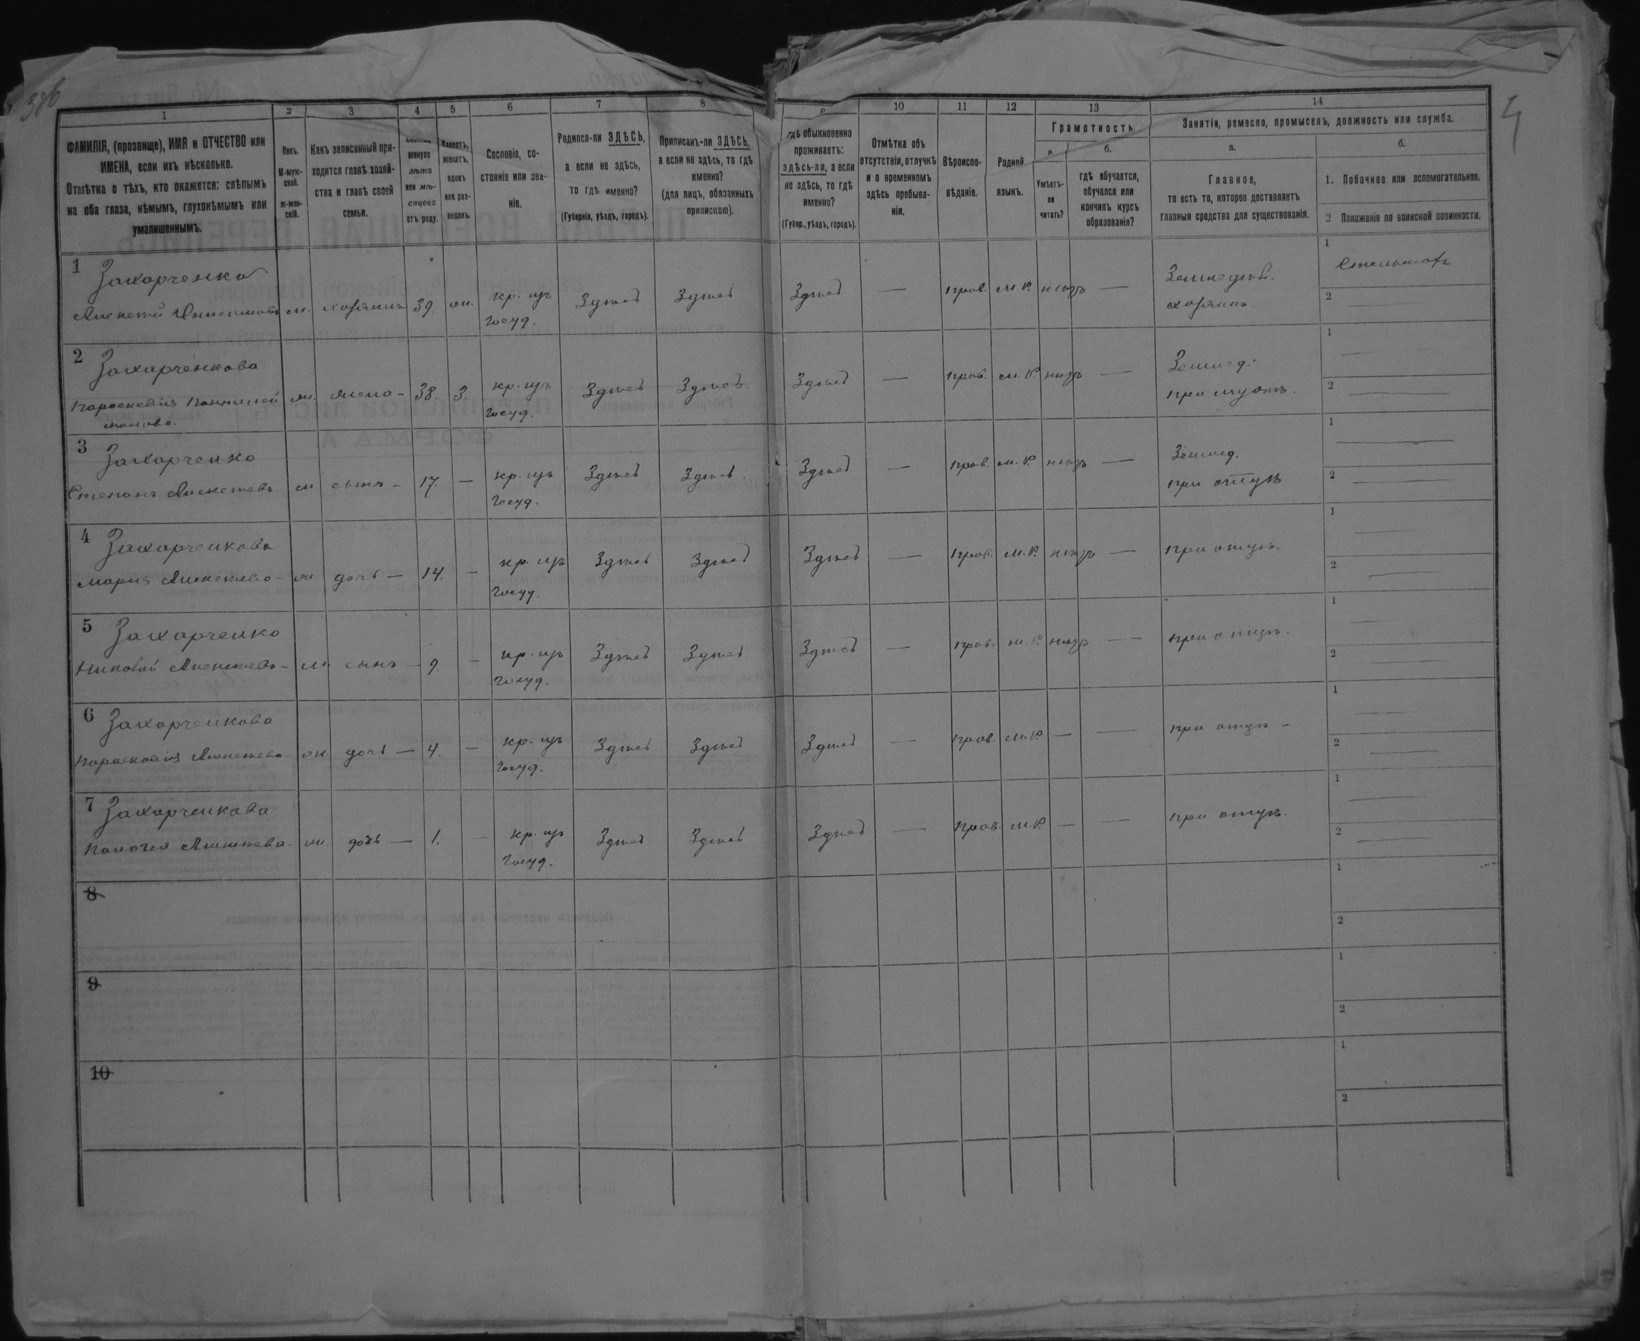 386
4
1
2
3
4
5
6
7
8
9
10
11
12
13
14
ФАМИЛІЯ, (прозвище), ИМЯ и ОТЧЕСТВО или
ИМЕНА, если ихъ нѣсколько.
Отмѣтка о тѣхъ, кто окажется: слѣпымъ
на оба глаза, нѣмымъ, глухонѣмымъ или
умалишеннымъ.
Полъ.
М-муж-
ской.
Ж-жен-
скій.
Какъ записанный при-
ходится главѣ хозяй-
ства и главѣ своей
семьи.
минуло
лѣтъ
или мѣ-
сяцевъ
отъ роду.
Холостъ,
женатъ,
вдовъ
или раз-
веденъ.
Сословіе, со-
стояніе или зва-
ніе.
Родился-ли ЗДѢСЬ,
а если не здѣсь,
то гдѣ именно?
(Губернія, уѣздъ, городъ).
Приписанъ-ли ЗДѢСЬ,
а если не здѣсь, то гдѣ
именно?
(для лицъ, обязанныхъ
припискою).
Гдѣ обыкновенно
проживаетъ:
здѣсь-ли, а если
не здѣсь, то гдѣ
именно?
(Губер., уѣздъ, городъ).
Отмѣтка объ
отсутствіи, отлучкѣ
и о временномъ
здѣсь пребыва-
ніи.
Вѣроиспо-
вѣданіе.
Родной
языкъ.
Грамотность.
а.
Умѣетъ-
ли
читать?
б.
гдѣ обучается,
обучался или
кончилъ курсъ
образованія?
Занятіе, ремесло, промыселъ, должность или служба.
а.
Главное,
то есть то, которое доставляетъ
главныя средства для существованія.
б.
1. Побочное или вспомогательное.
2 Положеніе по воинской повинности.
1 Захарченко
Алексѣй м. хозяинъ 39. кр. изъ госуд. Здѣсь Здѣсь Здѣсь — прав. м. Р. нѣтъ — Земледѣл. хозяинъ. 1
2
2 Захарченкова
Параскевія ж. жена — 38. З. кр. изъ госуд. Здѣсь Здѣсь. Здѣсь — прав. м. Р. нѣтъ — Землед. при мужѣ. 1
2
3 Захарченко
Степанъ Алексѣевъ м. сынъ — 17. — кр. изъ госуд. Здѣсь Здѣсь. Здѣсь — прав. м. Р. нѣтъ — Землед. при отцѣ 1
2
4 Захарченкова
Марія Алексѣева — ж. дочь — 14. — кр. изъ госуд. Здѣсь Здѣсь Здѣсь — прав. м. Р. нѣтъ — при отцѣ. 1
2
5 Захарченко
Николай Алексѣевъ — м. сынъ — 9. — кр. изъ госуд. Здѣсь Здѣсь Здѣсь — прав. м. Р. нѣтъ — при отцѣ. 1
2
6 Захарченкова
Параскевія Алексѣева ж. дочь — 4. — кр. изъ госуд. Здѣсь Здѣсь Здѣсь — прав. м. Р. — — при отцѣ — 1
2
7 Захарченкова
Алексѣева. ж. дочь — 1. — кр. изъ госуд. Здѣсь Здѣсь Здѣсь — прав. м. Р. — — при отцѣ. 1
2
8
1
2
9
1
2
10
1
2